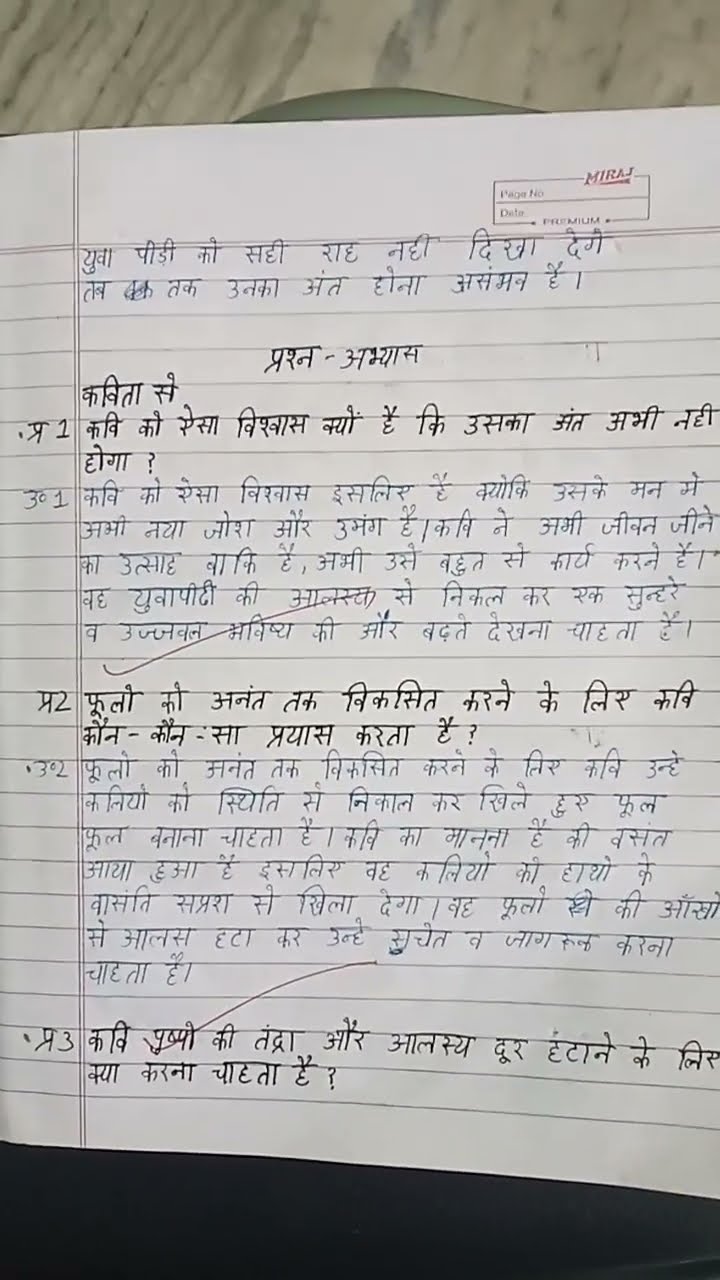 MIRAJ
Page No.
Date
PREMIUM
युवा पीड़ी को सही राह नही दिखा देगे
तब तक उनका अंत होना असंभव है।
प्रश्न - अभ्यास
कविता से
प्र 1 कवि को ऐसा विश्वास क्यों है कि उसका अंत अभी नही
होगा ?
उ० 1 कवि को ऐसा विश्वास इसलिए है क्योकि उसके मन मे
अभी नया जोश और उमंग है। कवि ने अभी जीवन जीने
का उत्साह बाकि है, अभी उसे बहुत से कार्य करने है।
वह युवापीढी की आलस्य से निकल कर एक सुन्हरे
व उज्जवल भविष्य की और बढ़ते देखना चाहता है।
प्र2 फूलो को अनंत तक विकसित करने के लिए कवि
कौन - कौन - सा प्रयास करता है ?
उ०2 फूलो को अनंत तक विकसित करने के लिए कवि उन्हे
कलियो को स्थिति से निकाल कर खिले हुए फूल
फूल बनाना चाहता है। कवि का मानना है की वसंत
आया हुआ है इसलिए वह कलियो को हाथो के
वासंति सप्रश से खिला देगा। वह फूलो की आँखो
से आलस हटा कर उन्हे सुचेत व जागरूक करना
चाहता है।
प्र3 कवि पुष्पो की तंद्रा और आलस्य दूर हंटाने के लिए
क्या करना चाहता है ?